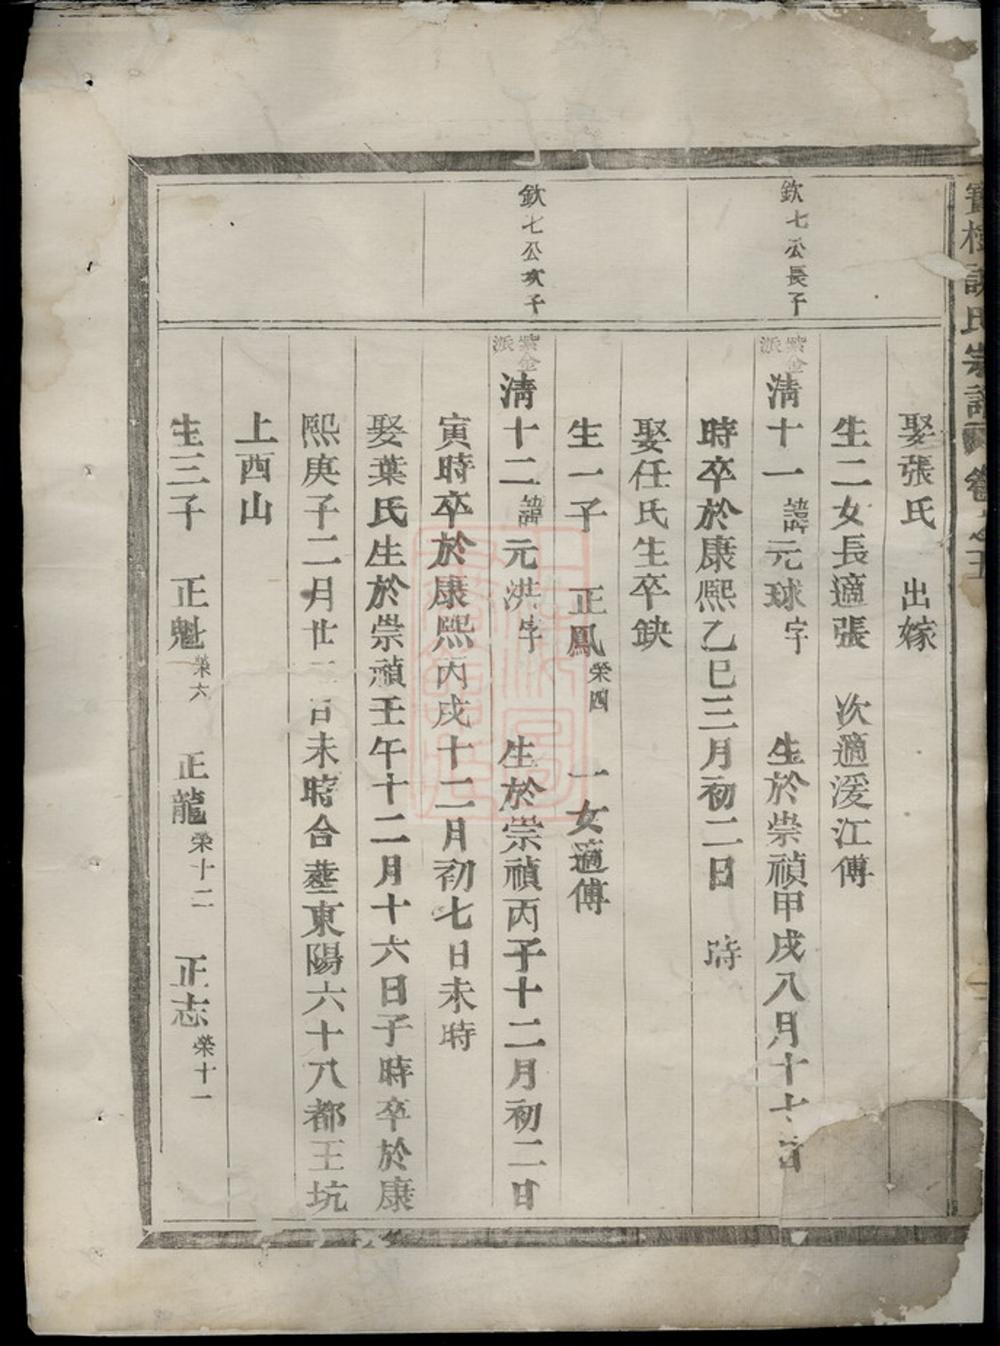 寶樹謝氏宗譜 卷之五
娶張氏 出嫁
生二女長適張 次適湲江傅
欽七公長子
紫金派
清十一 諱元球字 生於崇禎甲戌八月十
時卒於康熙乙巳三月初二日 時
娶任氏生卒缺
生一子 正鳳榮四 一女適傅
欽七公次子
紫金派
清十二 諱元洪字 生於崇禎丙子十二月初二日
寅時卒於康熙丙戌十二月初七日未時
娶葉氏生於崇禎壬午十二月十六日子時卒於康
熙庚子二月廿 日未時合塟東陽六十八都王坑
上西山
生三子 正魁榮六 正龍榮十二 正志榮十一